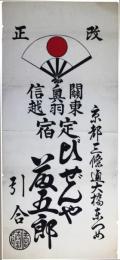 改正
關東
奥羽
信越
定宿
京都三條通大橋東つめ
ひぜんや
藤五郎
引合